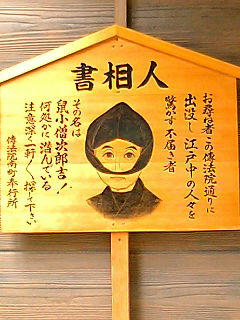 人相書
お尋ね者この傳法院通りに
出没し江戸中の人々を
驚かす不届き者
その名は
鼠小僧次郎吉!
何処かに潜んでいる
注意深く一軒〱探して下さい
傳法院南町奉行所